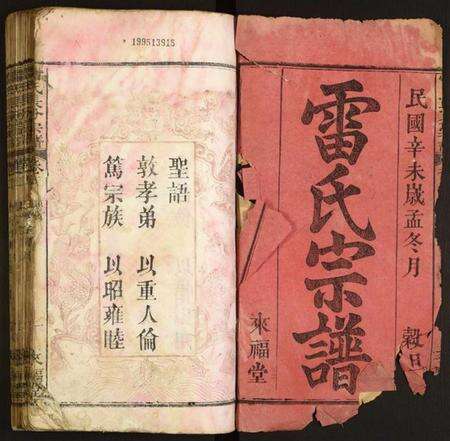 民國辛未歲孟冬月 穀旦
雷氏宗譜
來福堂
* 199513915
聖語
敦孝弟 以重人倫
篤宗族 以昭雍睦